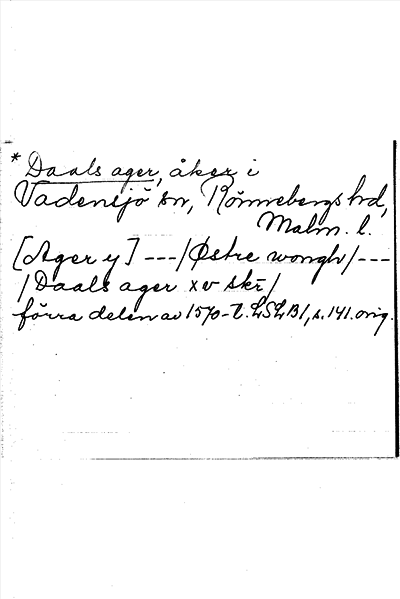 * Daals ager, åker i
Vadensjö sn, Rönnebergs hd,
Malm. l.
[Ager y] ---/Østre wongh/---
/Daals ager xv skr/
förra delen av 1570-t. LSLB1, s. 141. orig.